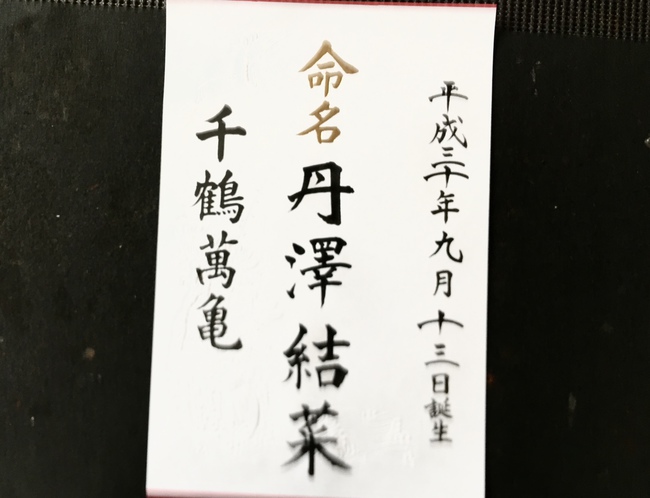 平成三十年九月十三日誕生
命名 丹澤結菜
千鶴萬亀